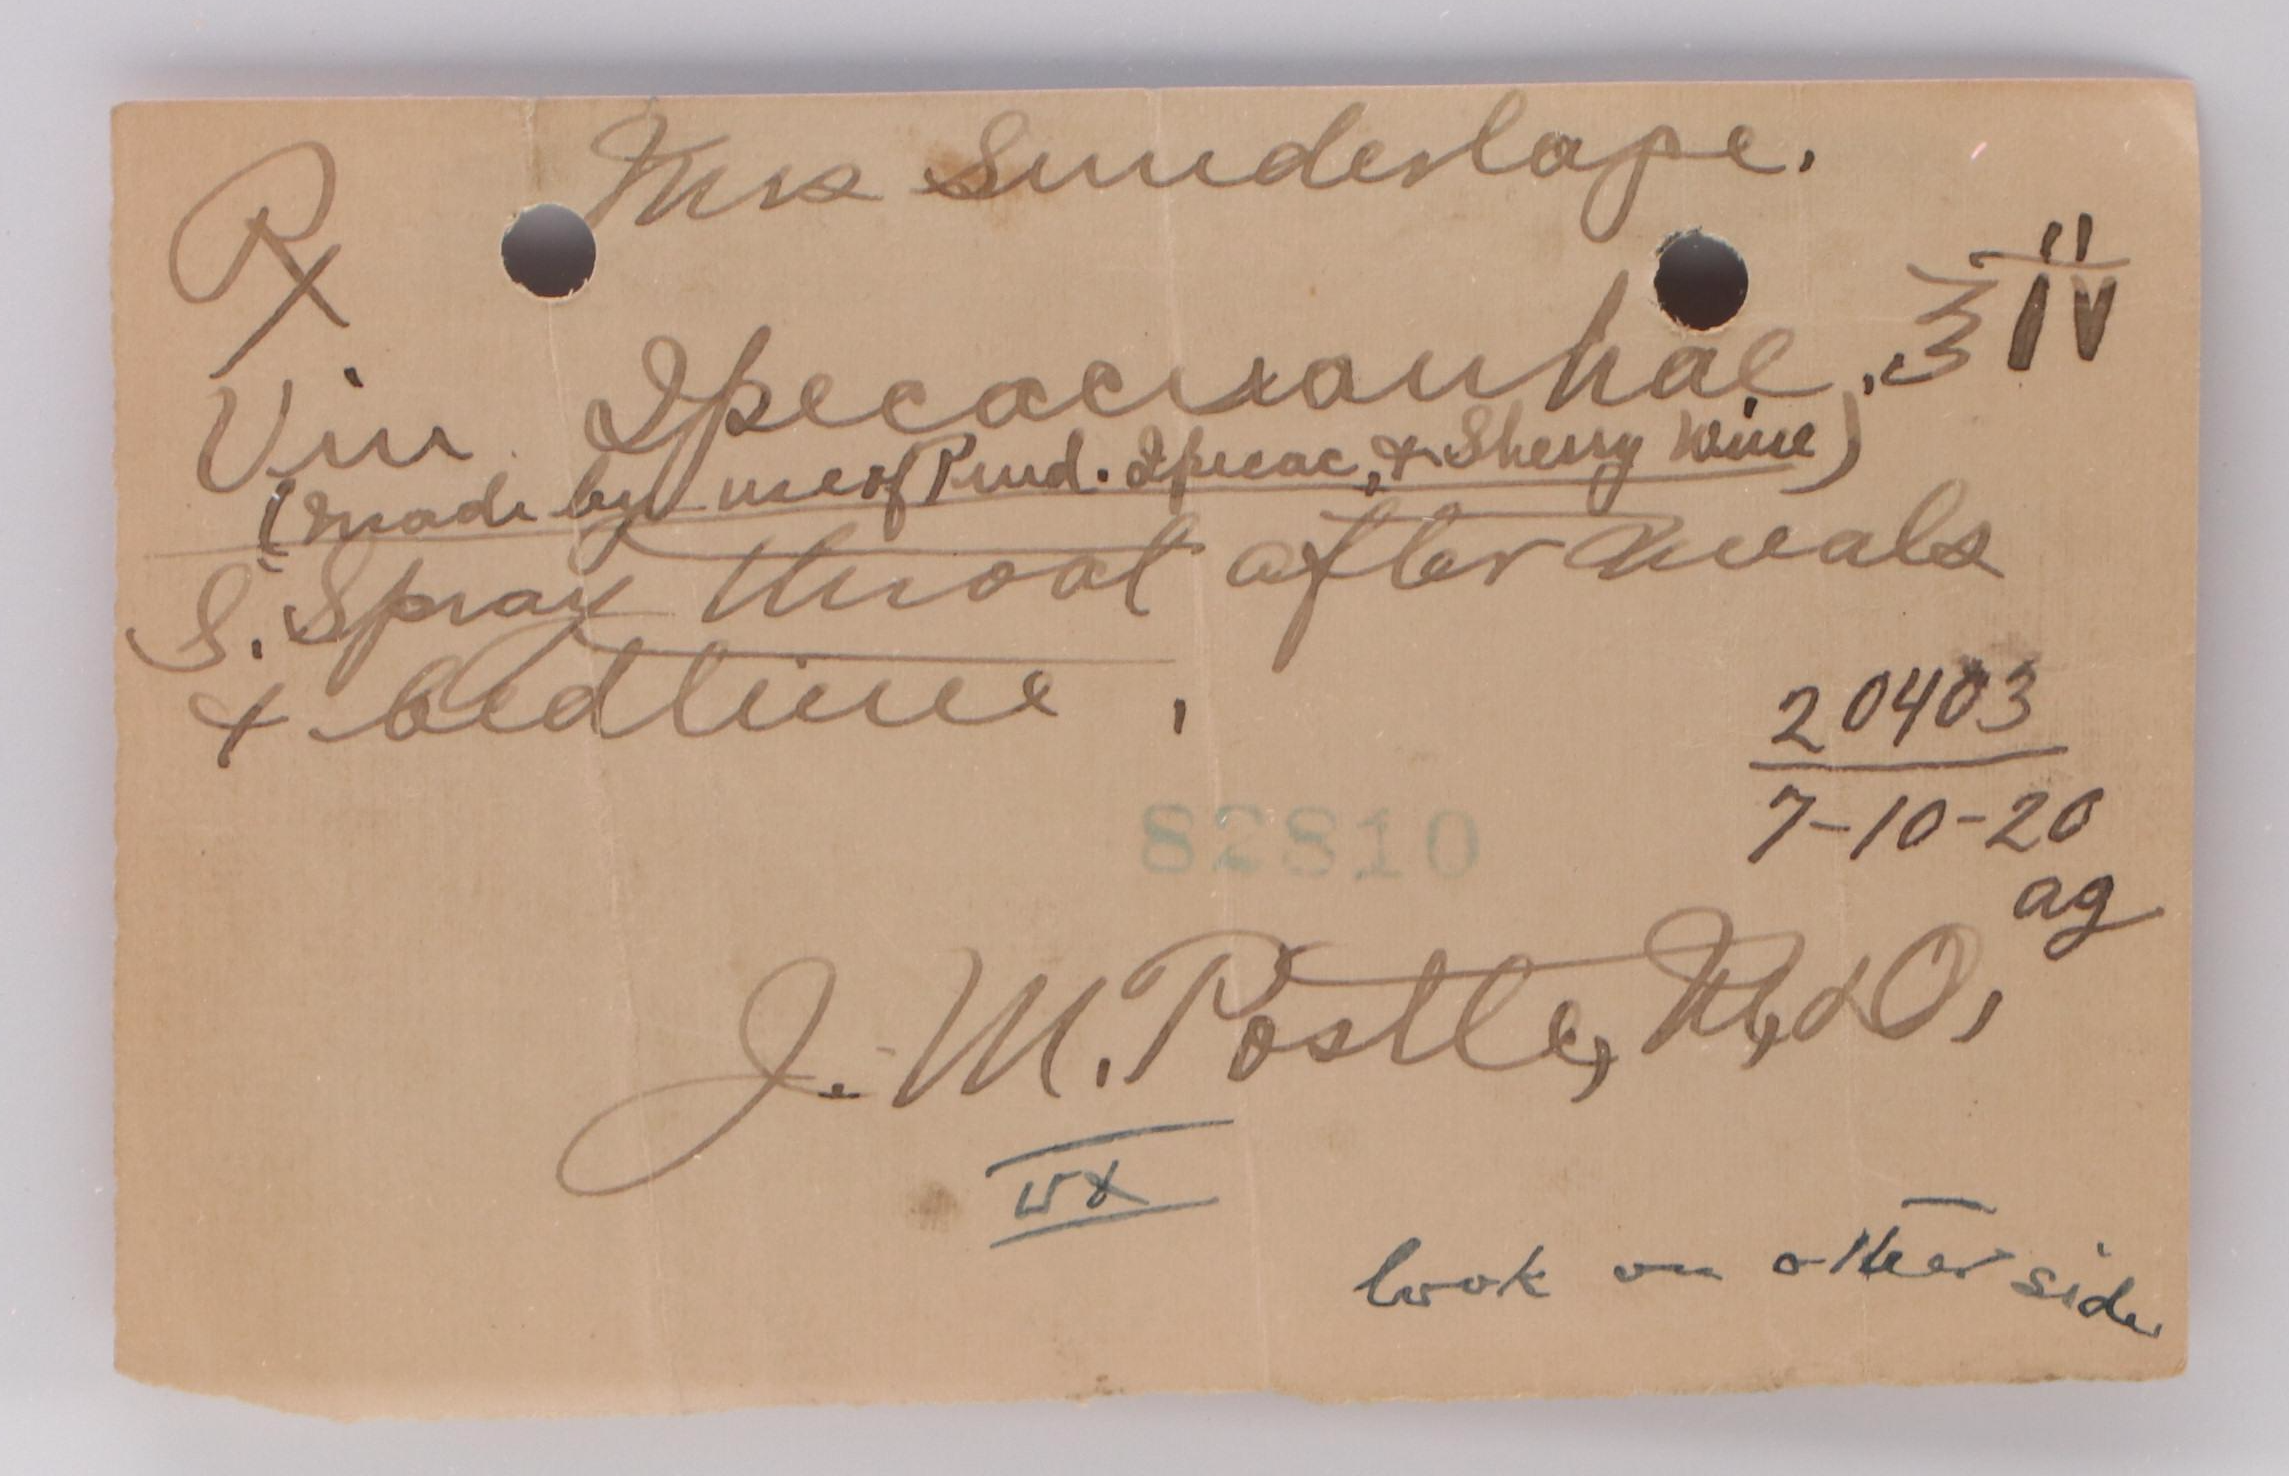 Mrs Sunderlage.
℞
Vin. Ipecacuanhae. ℥ IV
(made by use of Pwd. Ipecac, & Sherry Wine)
S. Spray throat after meals
& bedtime.
20403
7-10-20
ag
82810
J. M. Postle, M.D.
look on other side